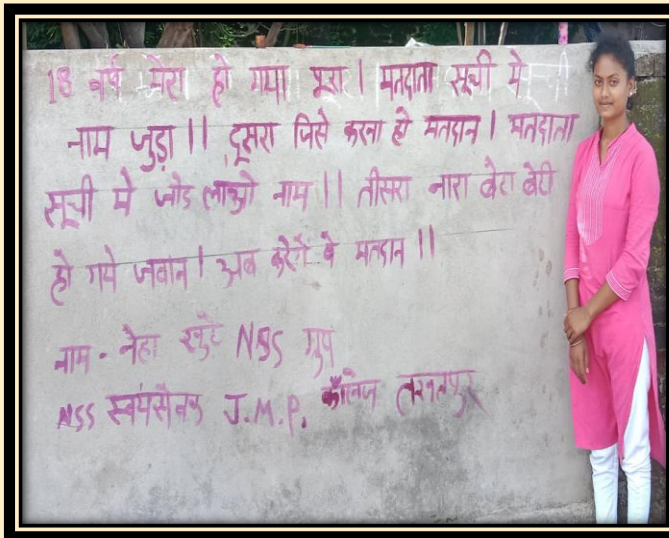 18 वर्ष मेरा हो गया पूरा। मतदाता सूची मे
नाम जुड़ा॥ दूसरा जिसे करना हो मतदान। मतदाता
सूची मे जोड लाओ नाम॥ तीसरा नारा बेटा बेटी
हो गये जवान। अब करेगें वे मतदान॥
नाम - नेहा खुटे NSS ग्रुप
NSS स्वयंसेवक J.M.P. कॉलेज तखतपुर